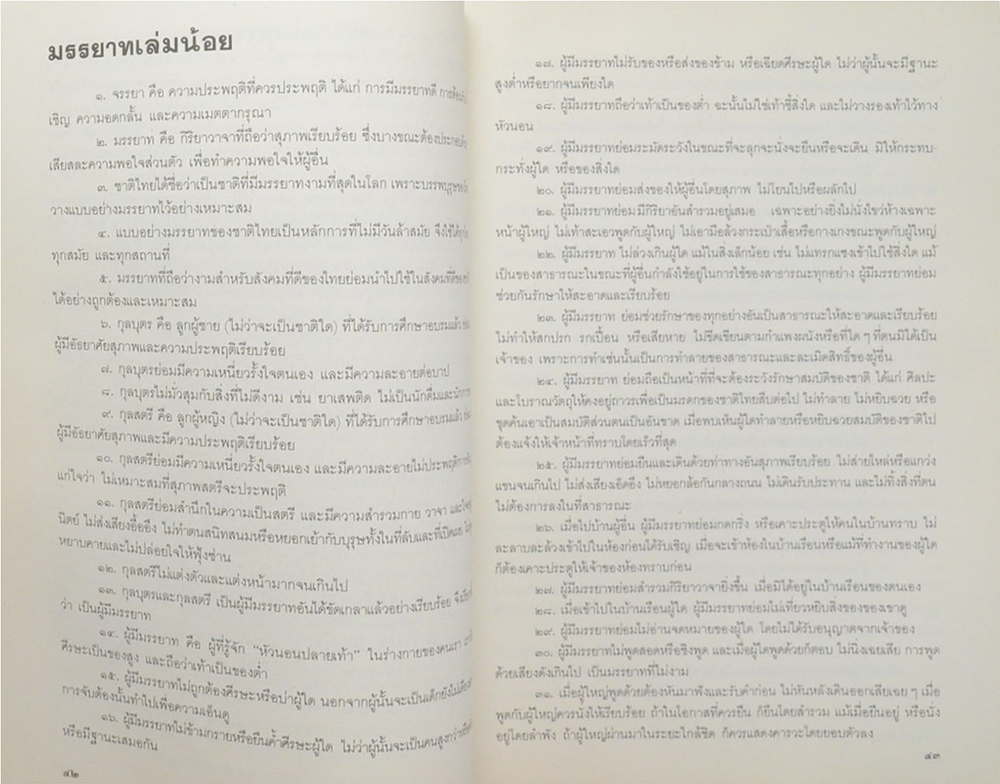 มรรยาทเล่มน้อย
๑. จรรยา คือ ความประพฤติที่ควรประพฤติ ได้แก่ การมีมรรยาทดี
เชิญ ความอดกลั้น และความเมตตากรุณา
๒. มรรยาท คือ กิริยาวาจาที่ถือว่าสุภาพเรียบร้อย ซึ่งบางขณะต้อง
เสียสละความพอใจส่วนตัว เพื่อทำความพอใจให้ผู้อื่น
๓. ชาติไทยได้ชื่อว่าเป็นชาติที่มีมรรยาทงามที่สุดในโลก เพราะบรรพบุรุษ
วางแบบอย่างมรรยาทไว้อย่างเหมาะสม
๔. แบบอย่างมรรยาทของชาติไทยเป็นหลักการที่ไม่มีวันล้าสมัย จึงใช้ได้
ทุกสมัย และทุกสถานที่
๕. มรรยาทที่ถือว่างามสำหรับสังคมที่ดีของไทยย่อมนำไปใช้ในสังคมที่ดี
ได้อย่างถูกต้องและเหมาะสม
๖. กุลบุตร คือ ลูกผู้ชาย (ไม่ว่าจะเป็นชาติใด) ที่ได้รับการศึกษาอบรมแล้ว
ผู้มีอัธยาศัยสุภาพและความประพฤติเรียบร้อย
๗. กุลบุตรย่อมมีความเหนี่ยวรั้งใจตนเอง และมีความละอายต่อบาป
๘. กุลบุตรไม่มั่วสุมกับสิ่งที่ไม่ดีงาม เช่น ยาเสพติด ไม่เป็นนักดื่มและนัก
๙. กุลสตรี คือ ลูกผู้หญิง (ไม่ว่าจะเป็นชาติใด) ที่ได้รับการศึกษาอบรมแล้ว
ผู้มีอัธยาศัยสุภาพและมีความประพฤติเรียบร้อย
๑๐. กุลสตรีย่อมมีความเหนี่ยวรั้งใจตนเอง และมีความละอายไม่ประพฤติ
แก่ใจว่า ไม่เหมาะสมที่สุภาพสตรีจะประพฤติ
๑๑. กุลสตรีย่อมสำนึกในความเป็นสตรี และมีความสำรวมกาย วาจา และใจ
นิตย์ ไม่ส่งเสียงอื้ออึง ไม่ทำตนสนิทสนมหรือหยอกเย้ากับบุรุษทั้งในที่ลับและที่เปิดเผย
หยาบคายและไม่ปล่อยใจให้ฟุ้งซ่าน
๑๒. กุลสตรีไม่แต่งตัวและแต่งหน้ามากจนเกินไป
๑๓. กุลบุตรและกุลสตรี เป็นผู้มีมรรยาทอันได้ขัดเกลาแล้วอย่างเรียบร้อย
ว่า เป็นผู้มีมรรยาท
๑๔. ผู้มีมรรยาท คือ ผู้ที่รู้จัก "หัวนอนปลายเท้า" ในร่างกายของคนเรา
ศีรษะเป็นของสูง และถือว่าเท้าเป็นของต่ำ
๑๕. ผู้มีมรรยาทไม่ถูกต้องศีรษะหรือบ่าผู้ใด นอกจากผู้นั้นจะเป็นเด็ก
การจับต้องนั้นทำไปเพื่อความเอ็นดู
๑๖. ผู้มีมรรยาทไม่ข้ามกรายหรือยืนค้ำศีรษะผู้ใด ไม่ว่าผู้นั้นจะเป็นคนสูงกว่า
หรือมีฐานะเสมอกัน
๔๒
๑๗. ผู้มีมรรยาทไม่รับของหรือส่งของข้าม หรือเฉียดศีรษะผู้ใด ไม่ว่าผู้นั้นจะมีฐานะ
สูงต่ำหรือยากจนเพียงใด
๑๘. ผู้มีมรรยาทถือว่าเท้าเป็นของต่ำ ฉะนั้นไม่ใช่เท้าชี้สิ่งใด และไม่วางรองเท้าไว้ทาง
หัวนอน
๑๙. ผู้มีมรรยาทย่อมระมัดระวังในขณะที่จะลุกจะนั่งจะยืนหรือจะเดิน มิให้กระทบ-
กระทั่งผู้ใด หรือของสิ่งใด
๒๐. ผู้มีมรรยาทย่อมส่งของให้ผู้อื่นโดยสุภาพ ไม่โยนไปหรือผลักไป
๒๑. ผู้มีมรรยาทย่อมมีกิริยาอันสำรวมอยู่เสมอ เฉพาะอย่างยิ่งไม่นั่งไขว่ห้างเฉพาะ
หน้าผู้ใหญ่ ไม่เท้าสะเอวพูดกับผู้ใหญ่ ไม่เอามือล้วงกระเป๋าเสื้อหรือกางเกงขณะพูดกับผู้ใหญ่
๒๒. ผู้มีมรรยาท ไม่ล่วงเกินผู้ใด แม้ในสิ่งเล็กน้อย เช่น ไม่แทรกแซงเข้าไปใช้สิ่งใด แม้
เป็นของสาธารณะในขณะที่ผู้อื่นกำลังใช้อยู่ในการใช้ของสาธารณะทุกอย่าง ผู้มีมรรยาทย่อม
ช่วยกันรักษาให้สะอาดและเรียบร้อย
๒๓. ผู้มีมรรยาท ย่อมช่วยรักษาของทุกอย่างอันเป็นสาธารณะให้สะอาดและเรียบร้อย
ไม่ทำให้สกปรก รกเปื้อน หรือเสียหาย ไม่ขีดเขียนตามกำแพงผนังหรือที่ใด ๆ ที่ตนมิได้เป็น
เจ้าของ เพราะการทำเช่นนั้นเป็นการทำลายของสาธารณะและละเมิดสิทธิ์ของผู้อื่น
๒๔. ผู้มีมรรยาท ย่อมถือเป็นหน้าที่ที่จะต้องระวังรักษาสมบัติของชาติ ได้แก่ ศิลปะ
และโบราณวัตถุให้คงอยู่ถาวรเพื่อเป็นมรดกของชาติไทยสืบต่อไป ไม่ทำลาย ไม่หยิบฉวย หรือ
ขุดค้นเอาเป็นสมบัติส่วนตนเป็นอันขาด เมื่อพบเห็นผู้ใดทำลายหรือหยิบฉวยสมบัติของชาติไป
ต้องแจ้งให้เจ้าหน้าที่ทราบโดยเร็วที่สุด
๒๕. ผู้มีมรรยาทย่อมยืนและเดินด้วยท่าทางอันสุภาพเรียบร้อย ไม่ส่ายไหล่หรือแกว่ง
แขนจนเกินไป ไม่ส่งเสียงเอ็ดอึง ไม่หยอกล้อกันกลางถนน ไม่เดินรับประทาน และไม่ทิ้งสิ่งที่ตน
ไม่ต้องการลงในที่สาธารณะ
๒๖. เมื่อไปบ้านผู้อื่น ผู้มีมรรยาทย่อมกดกริ่ง หรือเคาะประตูให้คนในบ้านทราบ ไม่
ละลาบละล้วงเข้าไปในห้องก่อนได้รับเชิญ เมื่อจะเข้าห้องในบ้านเรือนหรือแม้ที่ทำงานของผู้ใด
ก็ต้องเคาะประตูให้เจ้าของห้องทราบก่อน
๒๗. ผู้มีมรรยาทย่อมสำรวมกิริยาวาจายิ่งขึ้น เมื่อมิได้อยู่ในบ้านเรือนของตนเอง
๒๘. เมื่อเข้าไปในบ้านเรือนผู้ใด ผู้มีมรรยาทย่อมไม่เที่ยวหยิบสิ่งของของเขาดู
๒๙. ผู้มีมรรยาทย่อมไม่อ่านจดหมายของผู้ใด โดยไม่ได้รับอนุญาตจากเจ้าของ
๓๐. ผู้มีมรรยาทไม่พูดสอดหรือชิงพูด และเมื่อผู้ใดพูดด้วยก็ตอบ ไม่นิ่งเฉยเสีย การพูด
ด้วยเสียงดังเกินไป เป็นมรรยาทที่ไม่งาม
๓๑. เมื่อผู้ใหญ่พูดด้วยต้องหันมาฟังและรับคำก่อน ไม่หันหลังเดินออกเสียเฉย ๆ เมื่อ
พูดกับผู้ใหญ่ควรนั่งให้เรียบร้อย ถ้าในโอกาสที่ควรยืน ก็ยืนโดยสำรวม แม้เมื่อยืนอยู่ หรือนั่ง
อยู่โดยลำพัง ถ้าผู้ใหญ่ผ่านมาในระยะใกล้ชิด ก็ควรแสดงคารวะโดยยอบตัวลง
๔๓